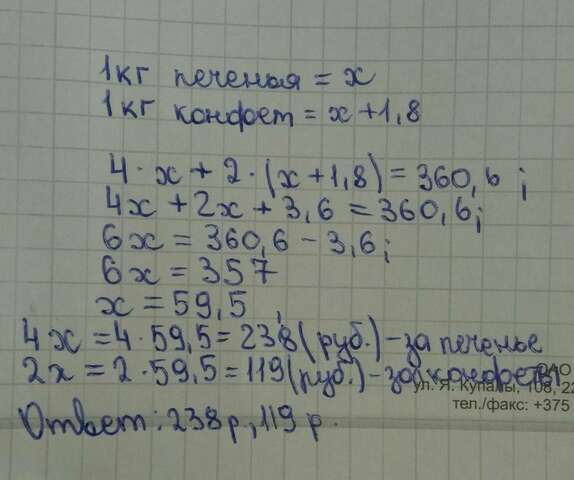 1кг печенья = x
1кг конфет = x+1,8
4·x+2·(x+1,8)=360,6;
4x+2x+3,6=360,6;
6x=360,6-3,6;
6x=357
x=59,5,
4x=4·59,5=238(руб.)-за печенье
2x=2·59,5=119(руб.)-за конфеты
ул. Я. Купалы, 108, 22
тел./факс: +375
Ответ: 238р., 119 р.